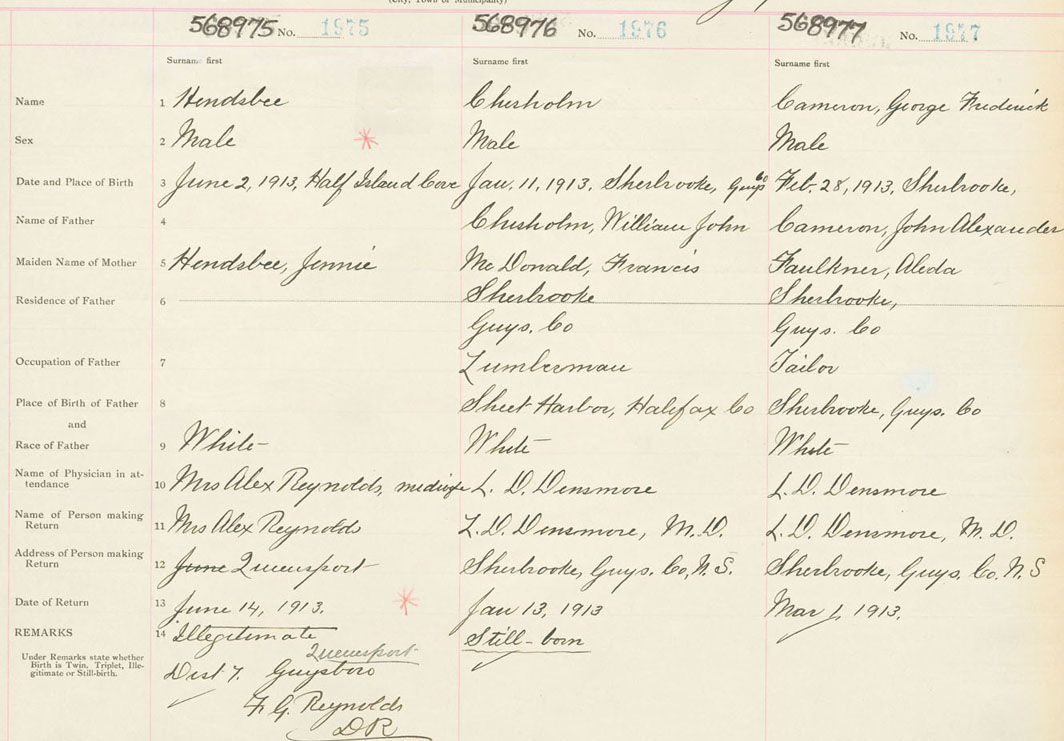 (City, Town or Municipality)
568975 No. 1975 568976 No. 1976 568977 No. 1977
Surname first Surname first Surname first
Name 1 Hendsbee Chisholm Cameron, George Frederick
Sex 2 Male Male Male
Date and Place of Birth 3 June 2, 1913, Half Island Cove Jan. 11, 1913. Sherbrooke, Guys Co Feb. 28, 1913, Sherbrooke,
Name of Father 4 Chisholm, William John Cameron, John Alexander
Maiden Name of Mother 5 Hendsbee, Jennie McDonald, Francis Faulkner, Aleda
Residence of Father 6 Sherbrooke Sherbrooke,
Guys. Co Guys. Co
Occupation of Father 7 Lumberman Tailor
Place of Birth of Father 8 Sheet Harbor, Halifax Co Sherbrooke, Guys. Co
and
Race of Father 9 White White White
Name of Physician in at-
tendance 10 Mrs Alex Reynolds, midwife L. D. Densmore L. D. Densmore
Name of Person making
Return 11 Mrs Alex Reynolds L. D. Densmore, M. D. L. D. Densmore, M. D.
Address of Person making
Return 12 June Queensport Sherbrooke, Guys. Co, N. S. Sherbrooke, Guys. Co. N. S
Date of Return 13 June 14, 1913. Jan 13, 1913 Mar 1, 1913.
REMARKS 14 Illegitimate Still-born
Under Remarks state whether
Birth is Twin. Triplet, Ille-
gitimate or Still-birth.
Queensport
Dist 7. Guysboro
F. G. Reynolds
DR